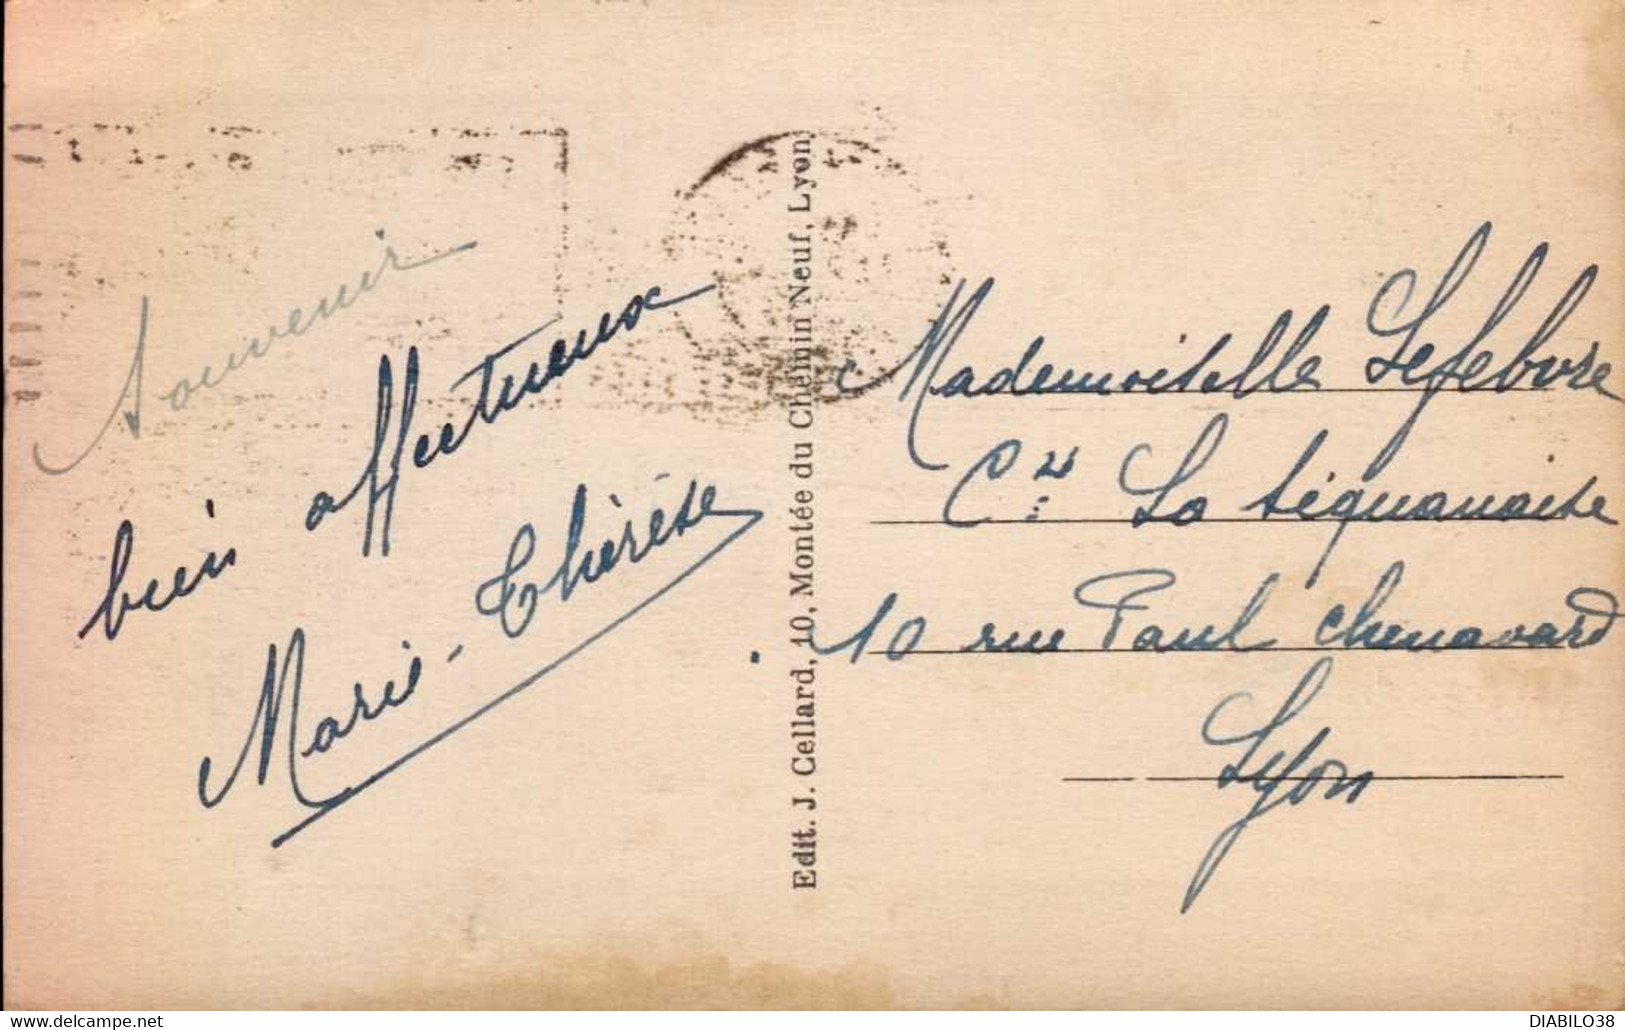 Souvenir
bien affectueux
Marie-Thérèse
Edit. J. Cellard, 10, Montée du Chemin Neuf, Lyon.
Mademoiselle Lefebvre
Cie La séquanaise
10 rue Paul Chenavard
Lyon
DIABILO38